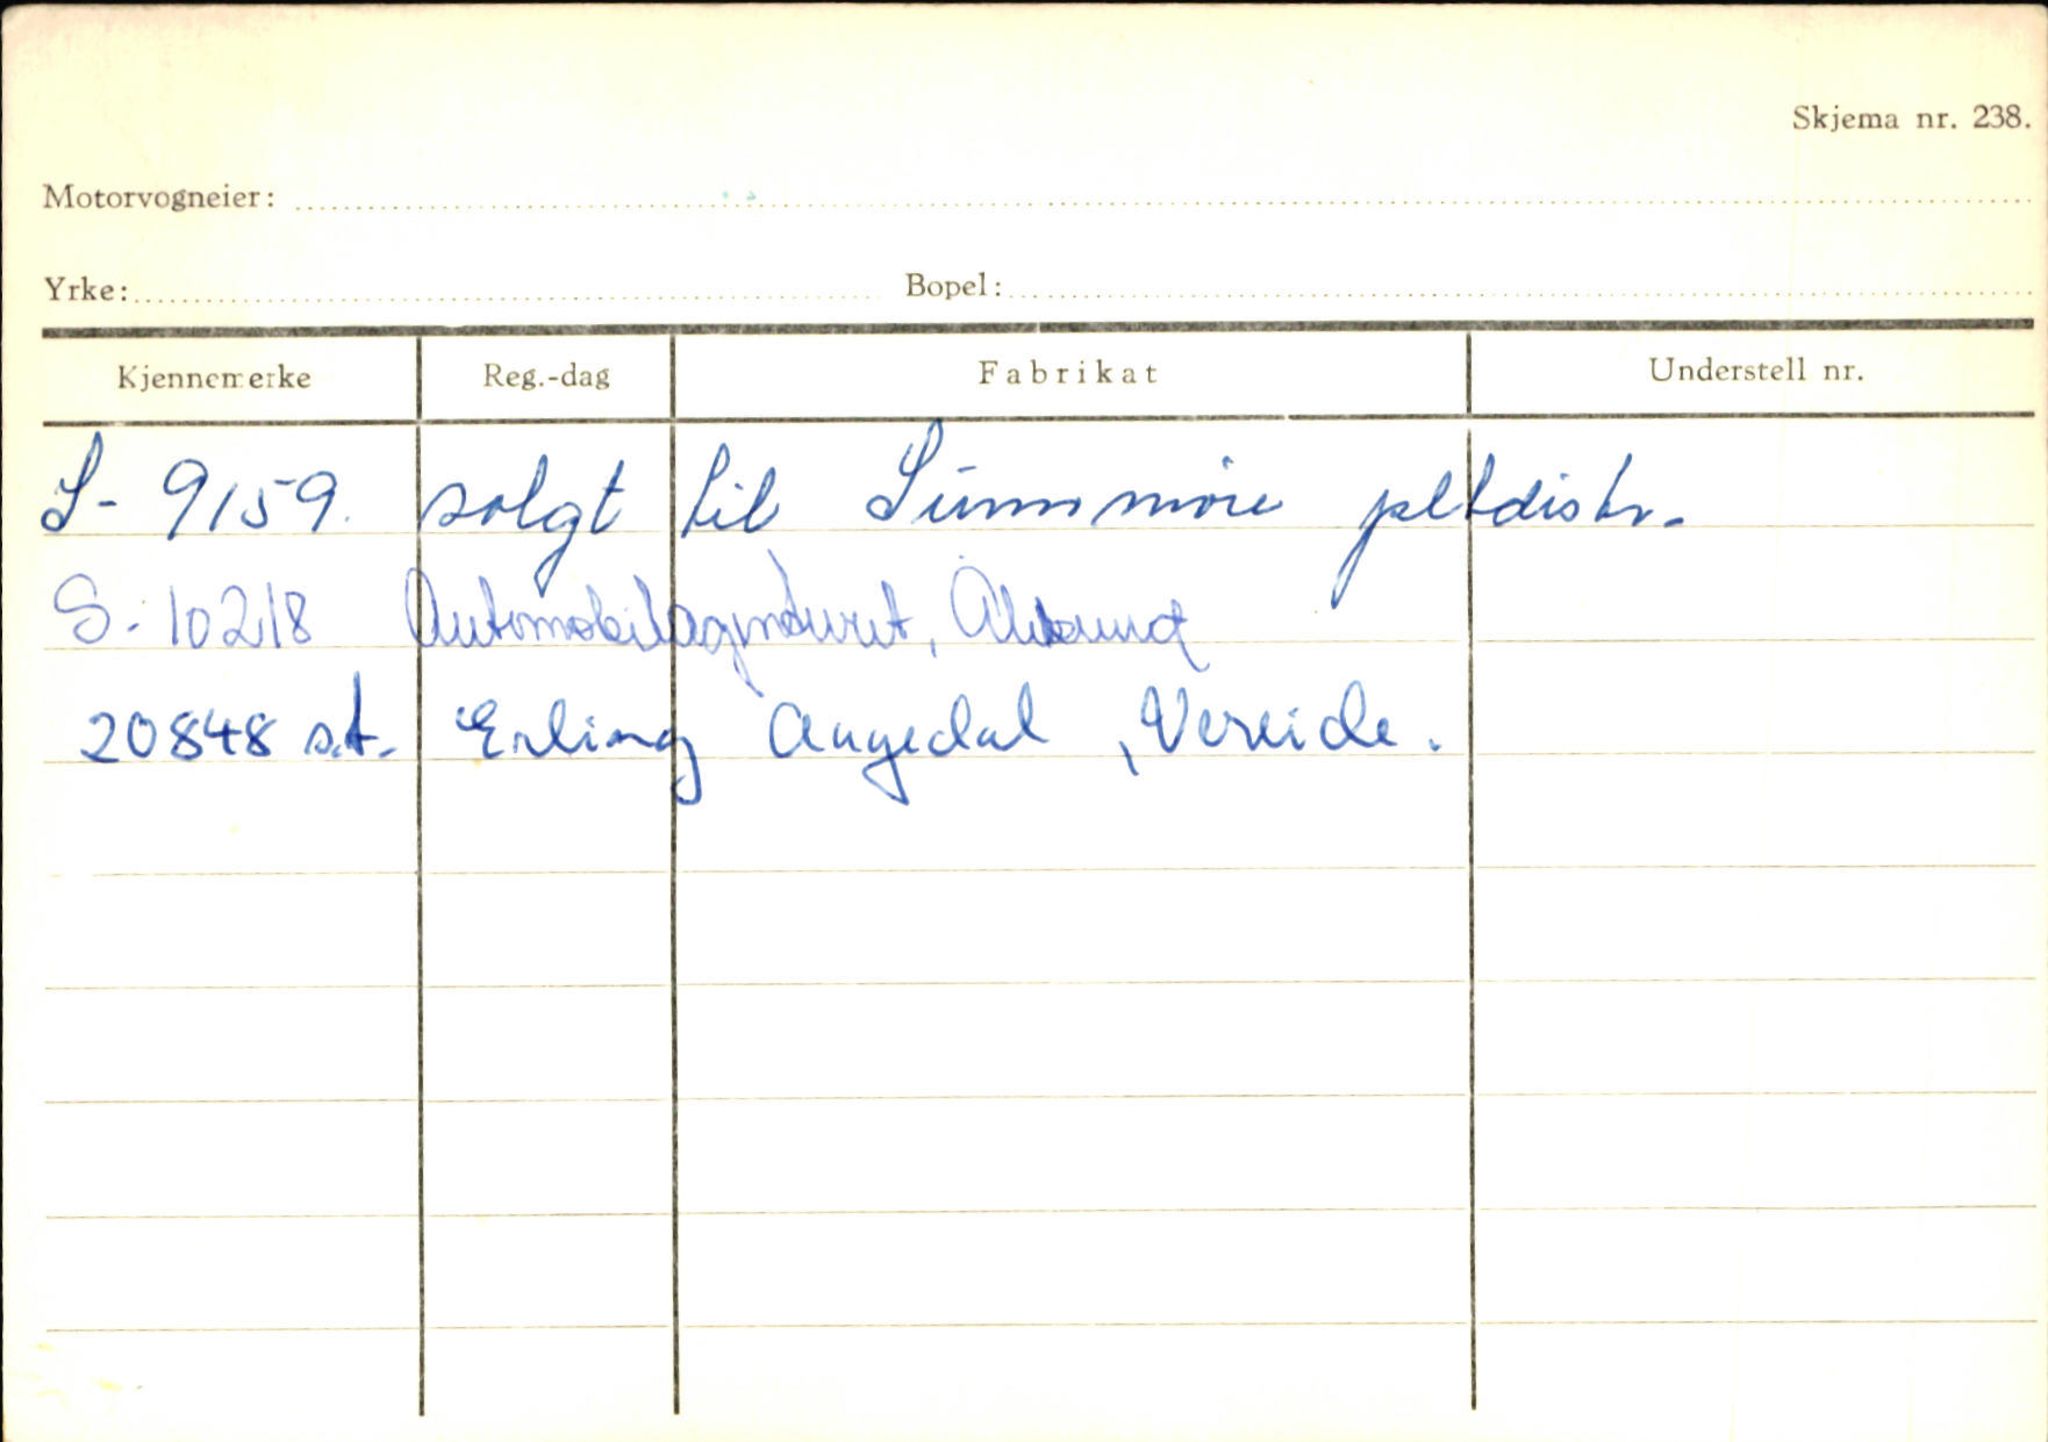 Skjema nr. 238.
Motorvogneier:
Yrke: Bopel:
Kjennemerke Reg.-dag Fabrikat Understell nr.
S- 9159. solgt til Sunnmøre pltdistr.
S- 10218 Automobilagenturet, Ålesund
20848 s.t. Erling Augedal, Vereide.